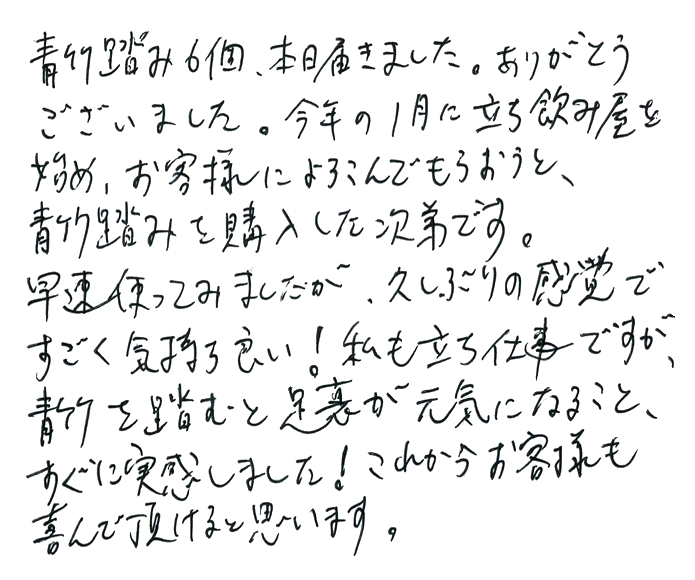 青竹踏み6個、本日届きました。ありがとう
ございました。今年の1月に立ち飲み屋を
始め、お客様によろこんでもらおうと、
青竹踏みを購入した次第です。
早速使ってみましたが、久しぶりの感覚で
すごく気持ち良い！私も立ち仕事ですが、
青竹を踏むと足裏が元気になること、
すぐに実感しました！これからお客様も
喜んで頂けると思います。